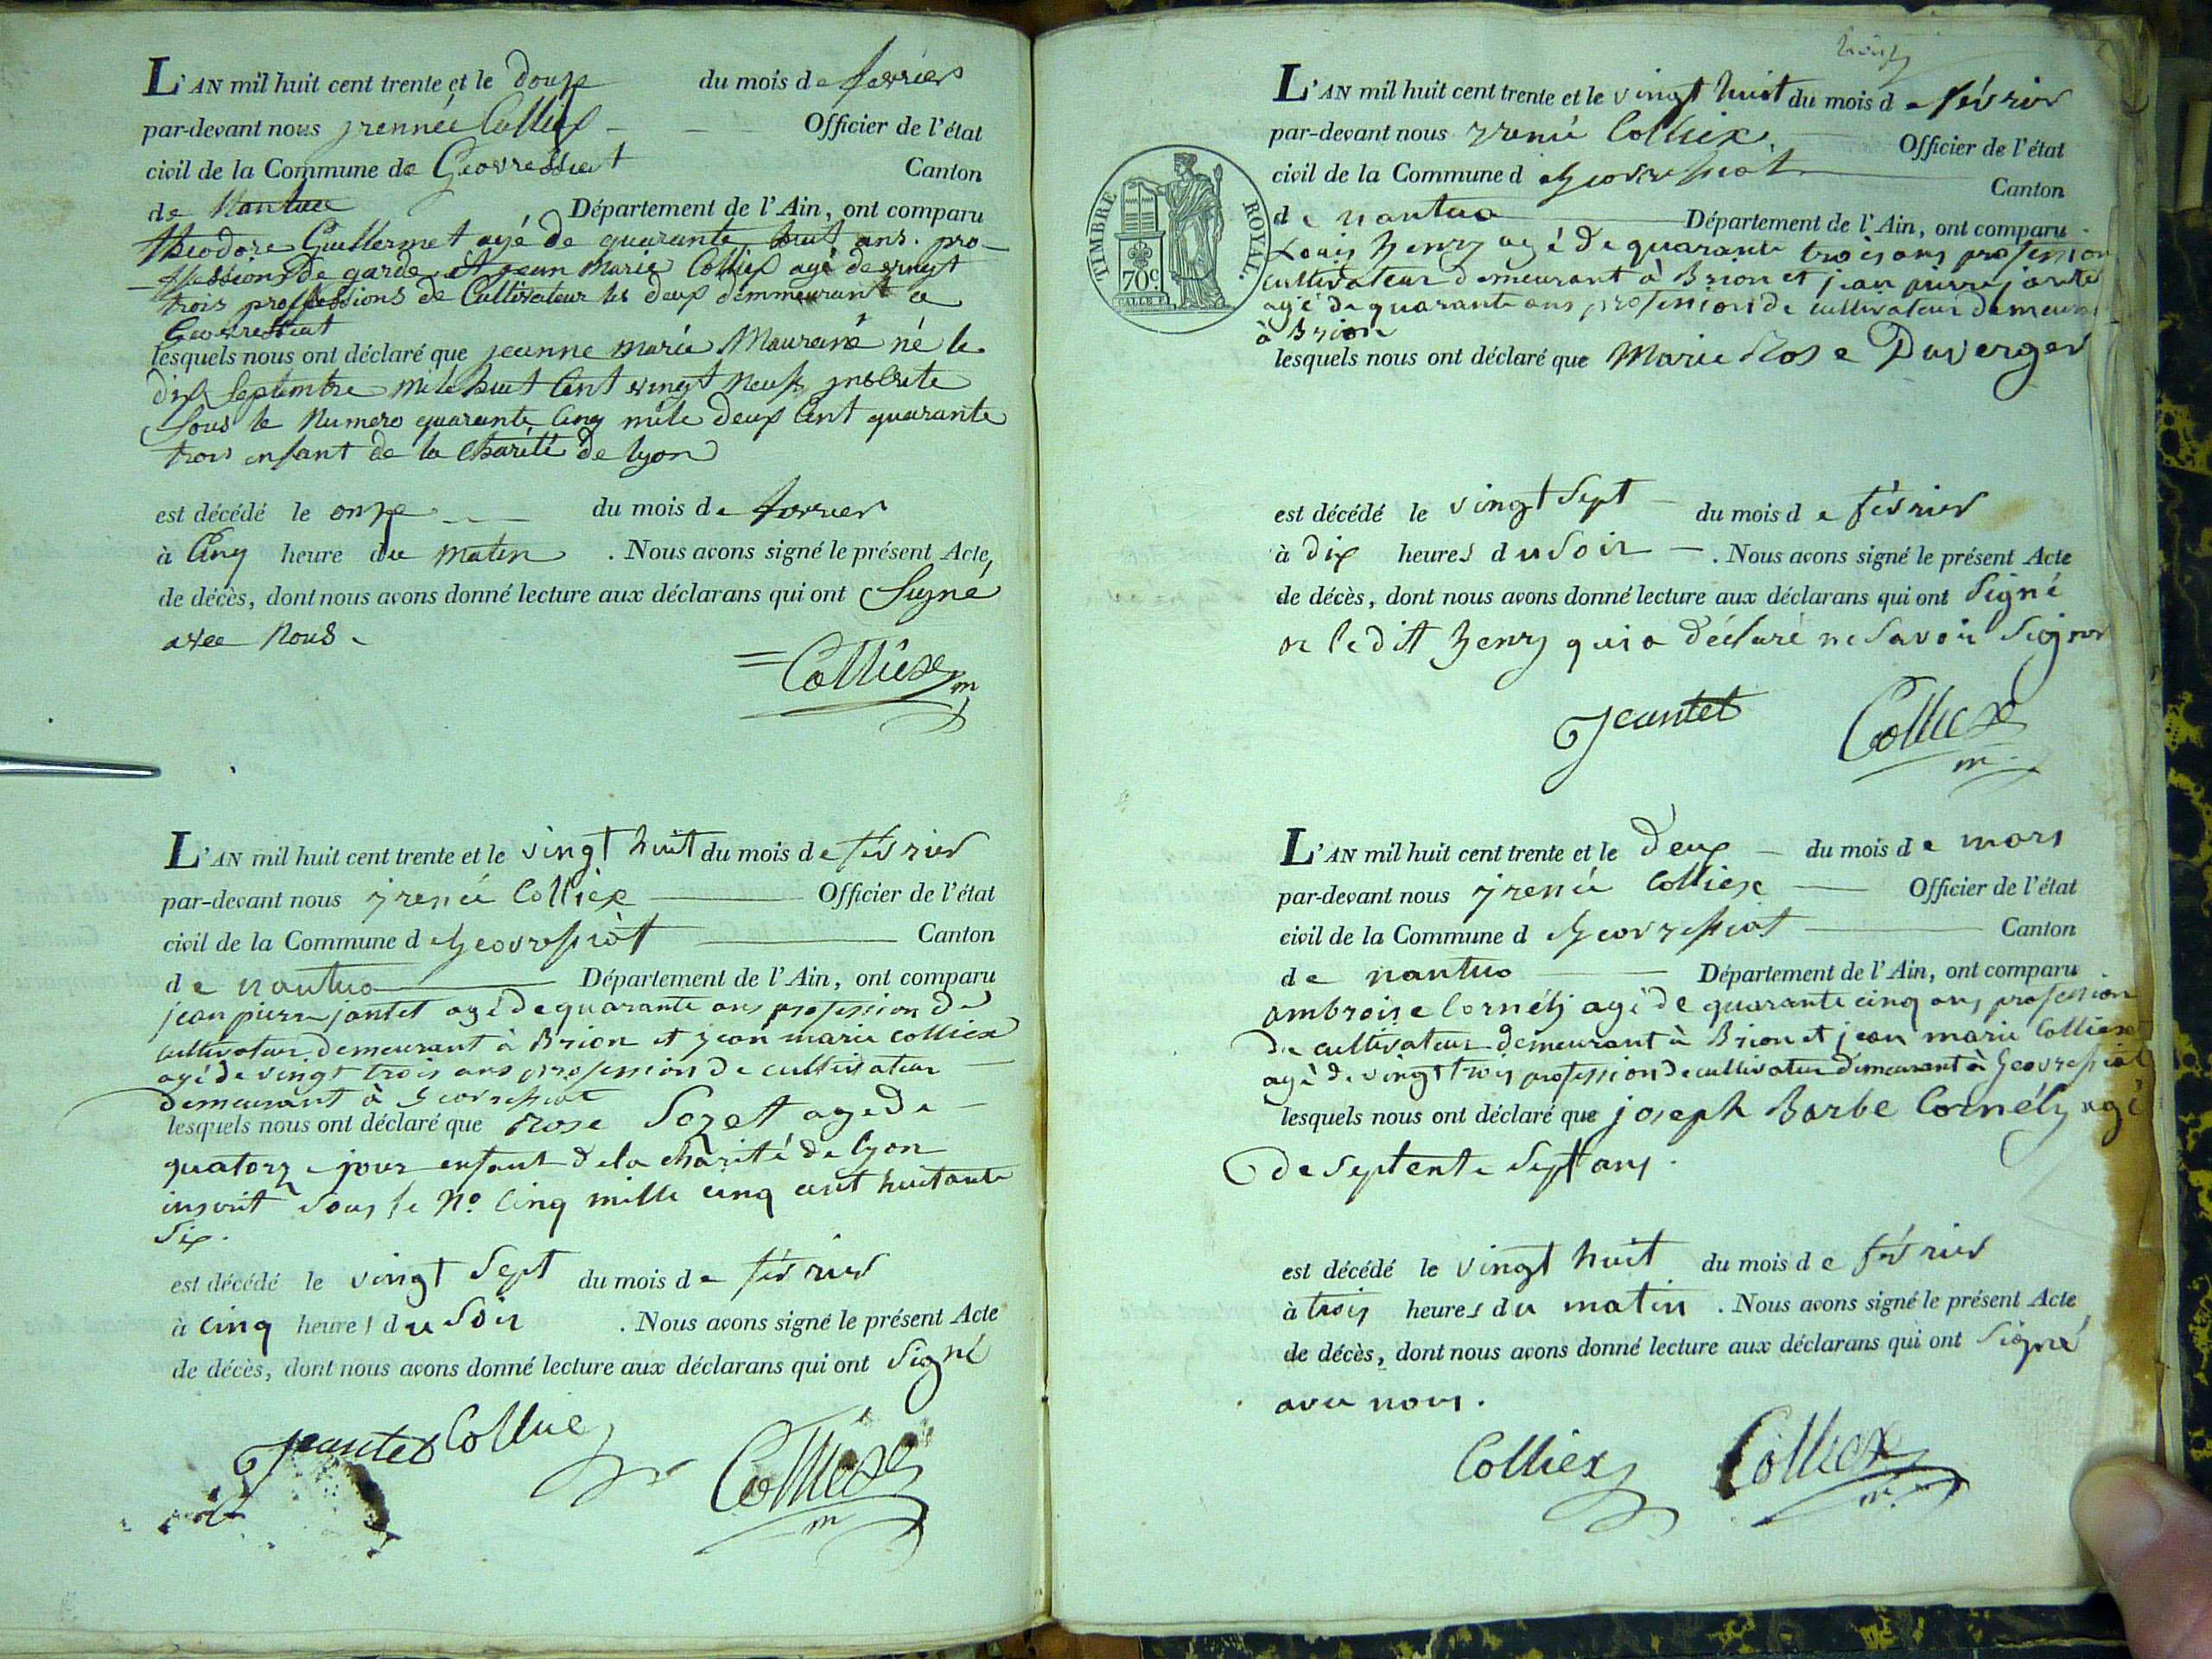 L'AN mil huit cent trente et le douze du mois de fevrier
par-devant nous jrennée Colliex Officier de l'état
civil de la Commune de Geovressiat Canton
de Nantua Département de l'Ain, ont comparu
théodore Guillermet agé de quarante huit ans. pro-
-ffessions de garde et jean Marie Colliex agé de vingt
trois proffessions de Cultivateur les deux demmeurant a
Geovressiat
lesquels nous ont déclaré que jeanne marie né le
dix Septembre mile huit Cent vingt neuf jnscrite
Sous le Numero quarante Cinq mile deux Cent quarante
trois enfant de la Charité de lyon
est décédé le onze du mois de fevrier
à Cinq heure du matin . Nous avons signé le présent Acte,
de décès, dont nous avons donné lecture aux déclarans qui ont Signé
avec Nous.
Colliex m
L'AN mil huit cent trente et le vingt huit du mois de février
par-devant nous jrenée Colliex Officier de l'état
civil de la Commune d Geovressiat Canton
de nantua Département de l'Ain, ont comparu
jean pierre jantet agé de quarante ans profession de
cultivateur demeurant à Brion et jean marie colliex
agé de vingt trois ans profession de cultivateur
demeurant à Geovressiat
lesquels nous ont déclaré que Rose Sozet age de
quatorze jour enfant de la charité de lyon
inscrit sous le N° Cinq mille cinq cent huitante
six.
est décédé le vingt sept du mois de février
à cinq heures du soir . Nous avons signé le présent Acte
de décès, dont nous avons donné lecture aux déclarans qui ont signé
Jeantet Colliex Colliex m
L'AN mil huit cent trente et le vingt huit du mois de février
par-devant nous jrené Colliex. Officier de l'état
civil de la Commune d Geovressiat Canton
de nantua Département de l'Ain, ont comparu
TIMBRE ROYAL.
70c.
Louis henry agé de quarante trois ans profession
cultivateur demeurant à Brion et jean pierre jantet
agé de quarante ans profession de cultivateur demeurant
à Brion
lesquels nous ont déclaré que Marie Rose Duverger
est décédé le vingt sept du mois de février
à dix heures du soir . Nous avons signé le présent Acte
de décès, dont nous avons donné lecture aux déclarans qui ont signé
ledit henry qui a déclaré ne savoir signer
Jeantet Colliex m
L'AN mil huit cent trente et le deux du mois de mars
par-devant nous jrenée Colliex Officier de l'état
civil de la Commune d Geovressiat Canton
de nantua Département de l'Ain, ont comparu
ambroise Cornély agé de quarante cinq ans profession
de cultivateur demeurant à Brion et jean marie Colliex
agé de vingt trois profession de cultivateur demeurant à Geovressiat
lesquels nous ont déclaré que joseph Barbe Cornély agé
de septente sept ans.
est décédé le vingt huit du mois de février
à trois heures du matin . Nous avons signé le présent Acte
de décès, dont nous avons donné lecture aux déclarans qui ont signé
avec nous.
Colliex Colliex m